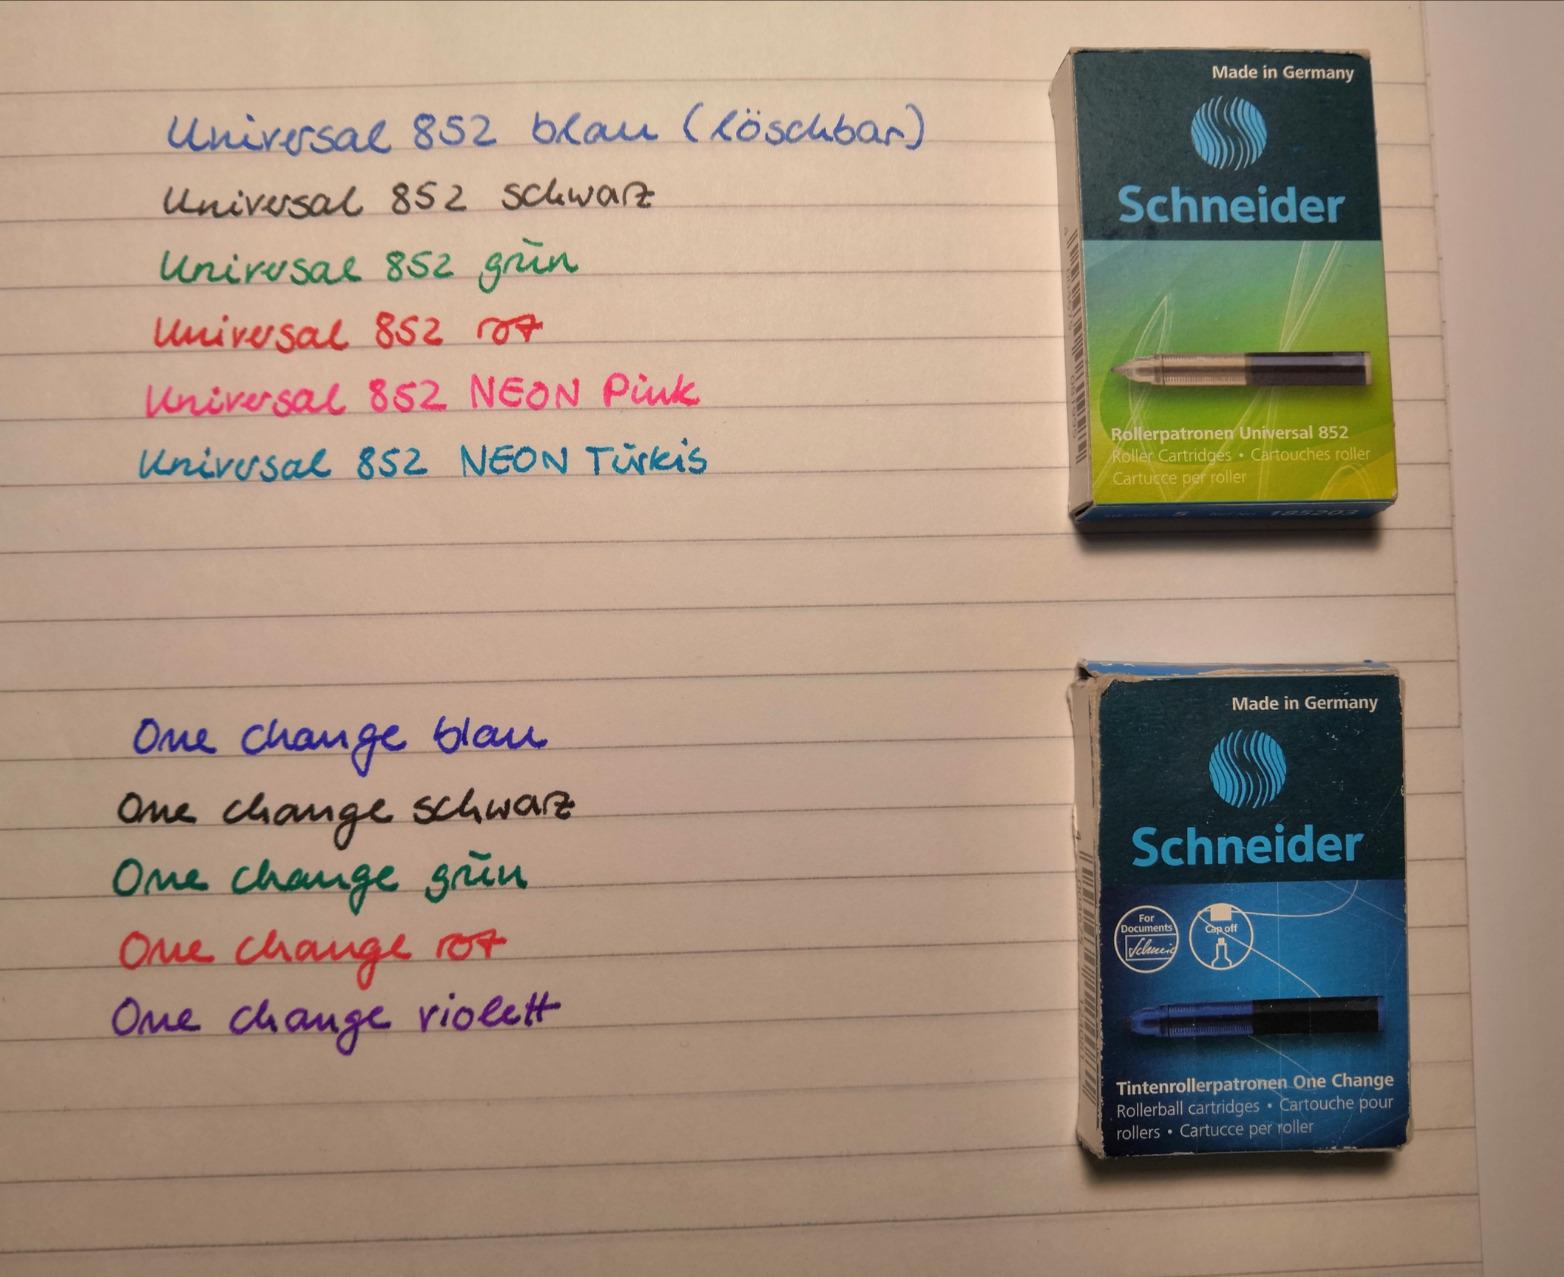 Universal 852 blau (löschbar)
Universal 852 schwarz
Universal 852 grün
Universal 852 rot
Universal 852 NEON Pink
Universal 852 NEON Türkis
Made in Germany
Schneider
Rollerpatronen Universal 852
Roller Cartridges • Cartouches roller
Cartucce per roller
5 185203
One change blau
One change schwarz
One change grün
One change rot
One change violett
Made in Germany
Schneider
For
Documents
Cap off
Tintenrollerpatronen One Change
Rollerball cartridges • Cartouche pour
rollers • Cartucce per roller